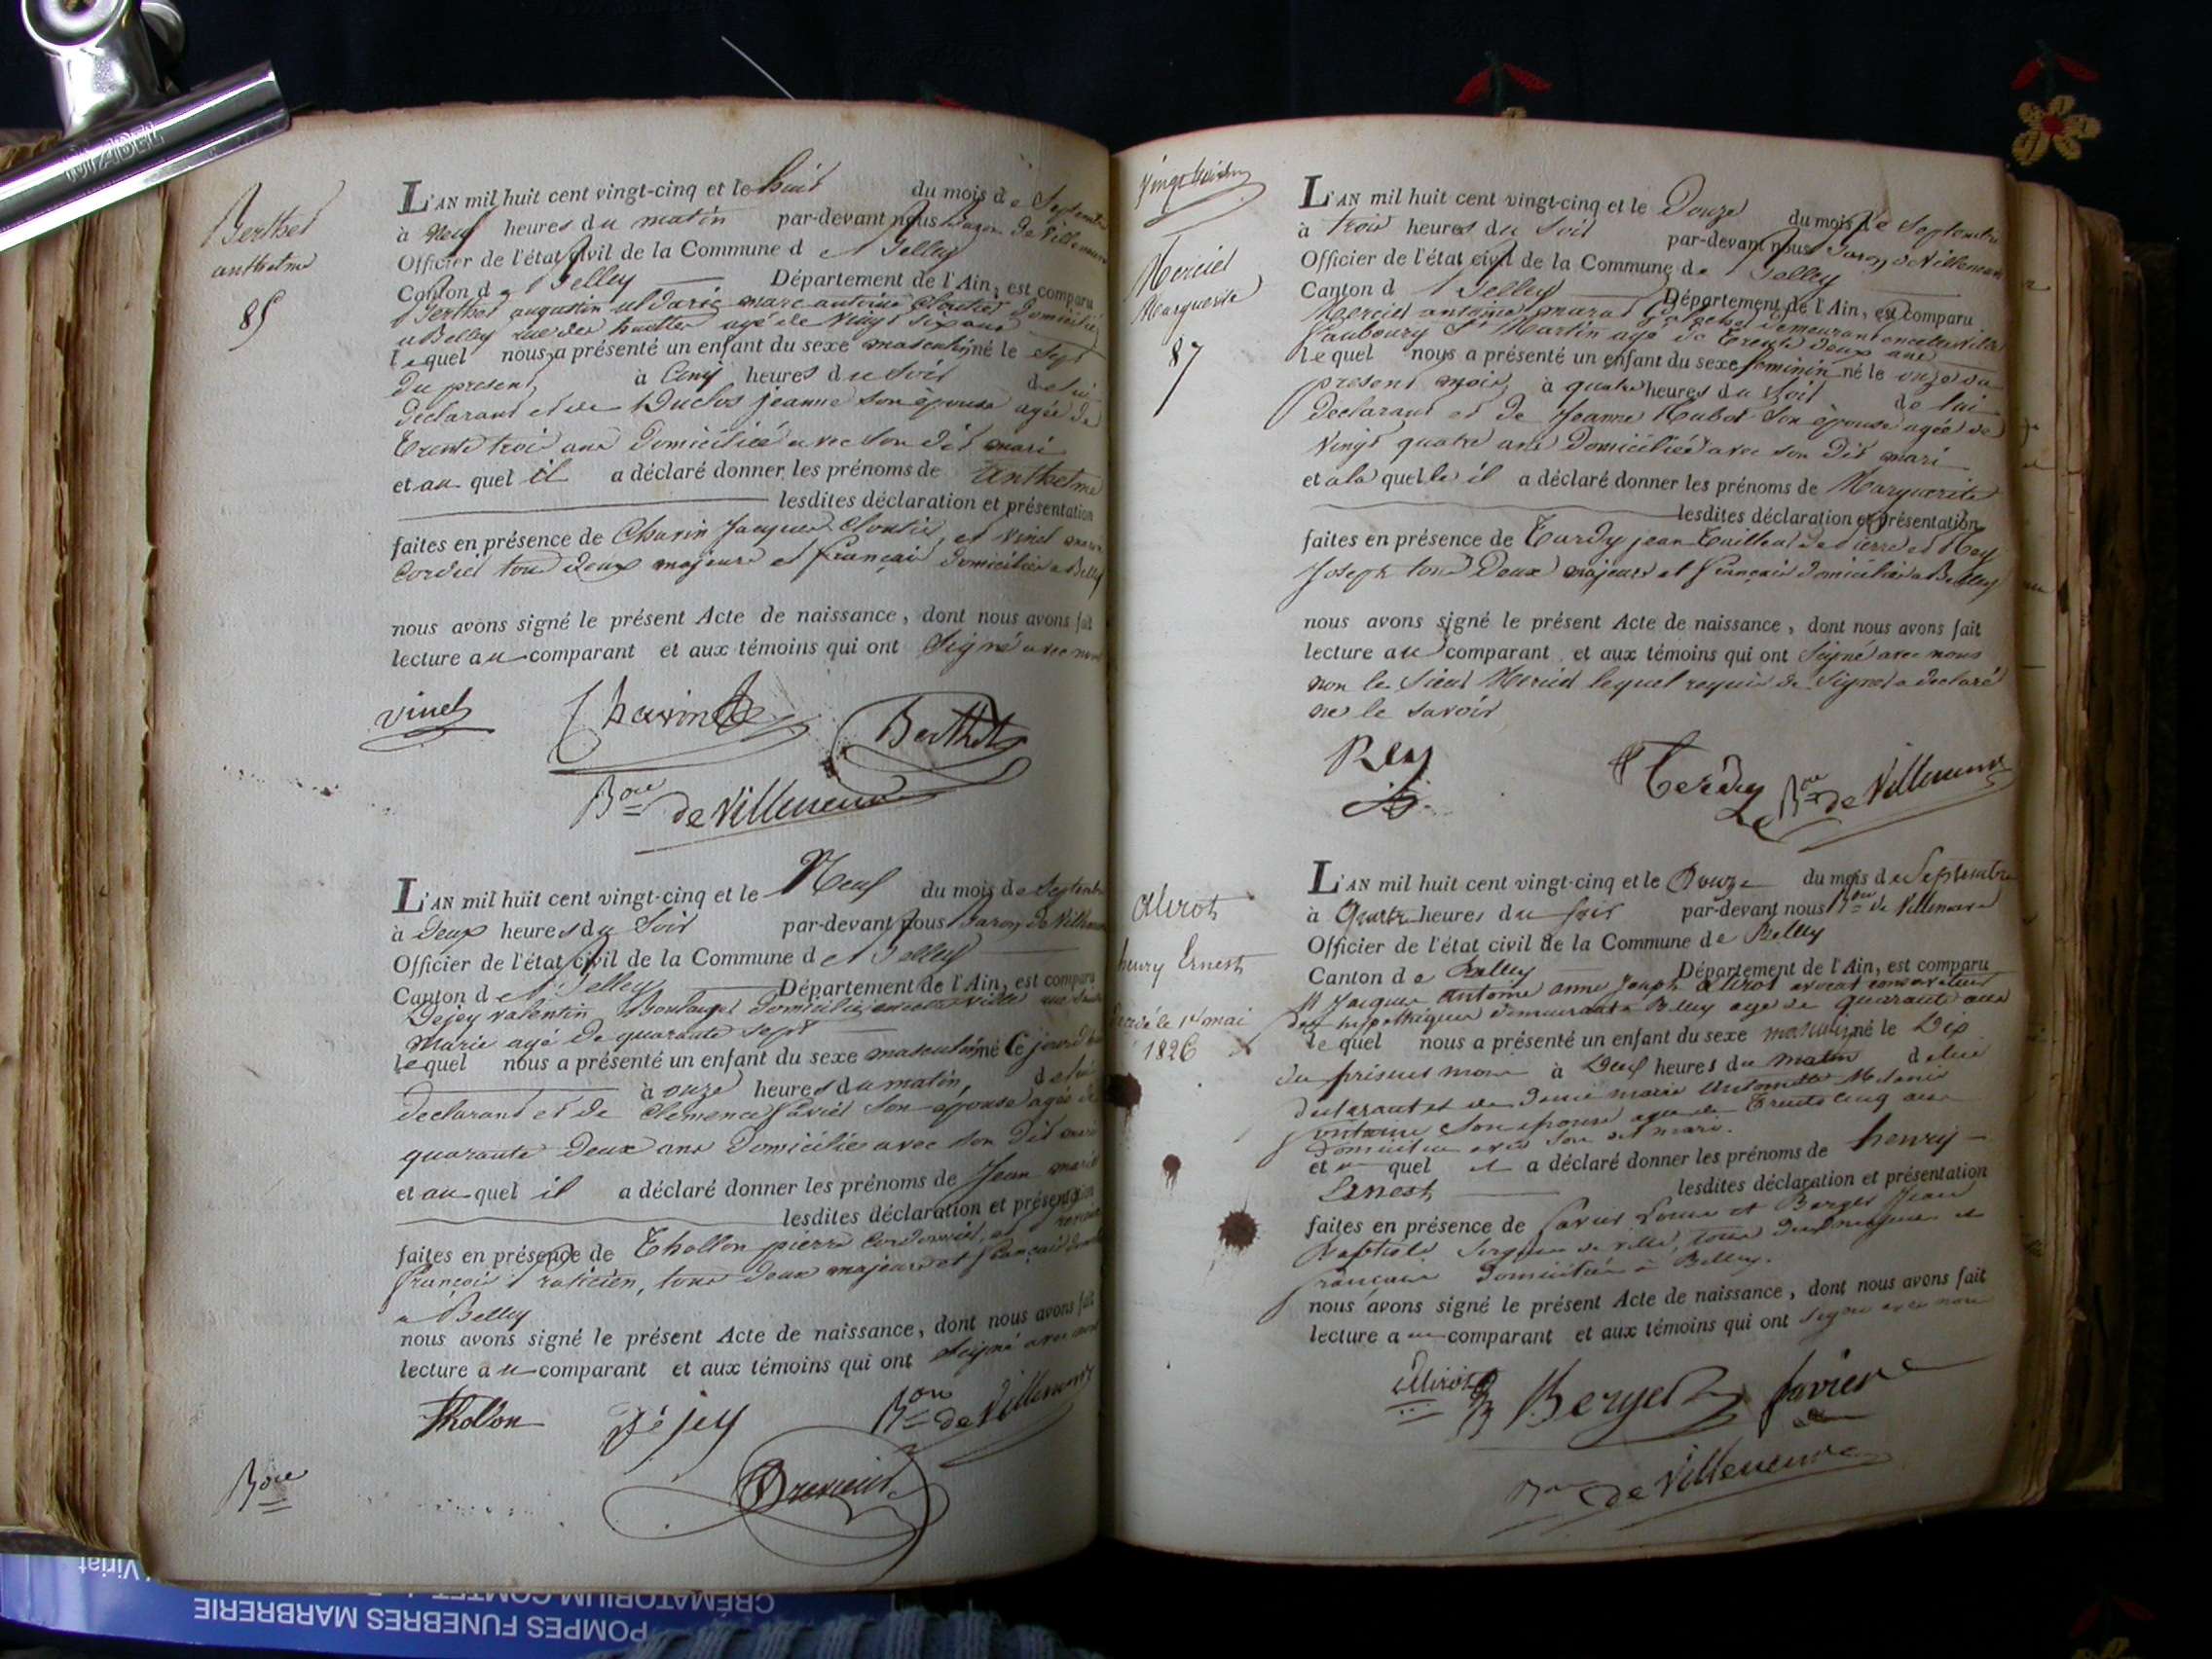 Berthet
anthelme
85
L'AN mil huit cent vingt-cinq et le huit du mois de Septembre
à Neuf heures du matin par-devant nous Baron de Villeneuve
Officier de l'état civil de la Commune de Belley
Canton de Belley Département de l'Ain, est comparu
Berthet augustin marc antoine domicilié
a Belley rue des agé de Vingt six ans
lequel nous a présenté un enfant du sexe masculin né le sept
du present à Cinq heures du soir de lui
declarant et de Duclos jeanne son epouse agée de
trente trois ans domiciliée avec son dit mari
et au quel il a déclaré donner les prénoms de Anthelme
lesdites déclaration et présentation
faites en présence de Chavin Jacques Cloutier, et Vinet
Cordier tous deux majeurs et français domiciliés a Belley
nous avons signé le présent Acte de naissance, dont nous avons fait
lecture au comparant et aux témoins qui ont Signé avec nous
Vinet Chavin Berthet
Bon de Villeneuve
L'AN mil huit cent vingt-cinq et le Neuf du mois de Septembre
à deux heures du Soir par-devant nous Baron de Villeneuve
Officier de l'état civil de la Commune de Belley
Canton de Belley Département de l'Ain, est comparu
Dejey Valentin Boulanger domicilié en cette ville rue Sainte
Marie agé de quarante sept
lequel nous a présenté un enfant du sexe masculin né Ce jourd'hui
à onze heures du matin, de lui
declarant et de Clemence Savier Son epouse agée de
quarante deux ans domiciliée avec son dit mari
et au quel il a déclaré donner les prénoms de Jean marie
lesdites déclaration et présentation
faites en présence de Thollon pierre Cordonnier, et
françois Praticien, tous deux majeurs et français
a Belley
nous avons signé le présent Acte de naissance, dont nous avons fait
lecture au comparant et aux témoins qui ont signé avec nous
Thollon Déjey Bon de Villeneuve
Bon
Merciel
Marguerite
87
L'AN mil huit cent vingt-cinq et le Douze du mois de Septembre
à trois heures du Soir par-devant nous Baron de Villeneuve
Officier de l'état civil de la Commune de Belley
Canton d Belley Département de l'Ain, est comparu
Merciel antoine demeurant en cette ville
faubourg St Martin agé de trente deux ans
lequel nous a présenté un enfant du sexe feminin né le onze du
present mois, à quatre heures du Soir de lui
declarant et de Jeanne Son epouse agée de
vingt quatre ans Domiciliée avec son dit mari
et a la quelle il a déclaré donner les prénoms de Marguerite
lesdites déclaration et présentation
faites en présence de Tardy jean tailleur de Pierre et Rey
Joseph tous Deux majeurs et français domiciliés a Belley
nous avons signé le présent Acte de naissance, dont nous avons fait
lecture au comparant et aux témoins qui ont Signé avec nous
non le Sieur Merciel lequel requis de Signer a declaré
ne le savoir
Rey Terdy Le Bon de Villeneuve
henry Ernest
1er mai
1826
L'AN mil huit cent vingt-cinq et le Douze du mois de Septembre
à Quatre heures du soir par-devant nous Bon de Villeneuve
Officier de l'état civil de la Commune de Belley
Canton de Belley Département de l'Ain, est comparu
Mr Jacques Antoine anne Joseph avocat conservateur
des hypothèques demeurant a Belley agé de quarante ans
lequel nous a présenté un enfant du sexe masculin né le Dix
du présent mois à Deux heures du matin de lui
declarant et de marie Antoinette Melanie
Son epouse agée de Trente Cinq ans
Domiciliée avec Son dit mari.
et au quel il a déclaré donner les prénoms de henry
Ernest lesdites déclaration et présentation
faites en présence de Savier Louis et Berger Jean
Baptiste Sergens de ville, tous deux majeurs et
français domiciliés a Belley.
nous avons signé le présent Acte de naissance, dont nous avons fait
lecture au comparant et aux témoins qui ont signé avec nous
Berger Savier
Bon de Villeneuve
POMPES FUNEBRES MARBRERIE
CRÉMATORIUM COMTET
Viriat